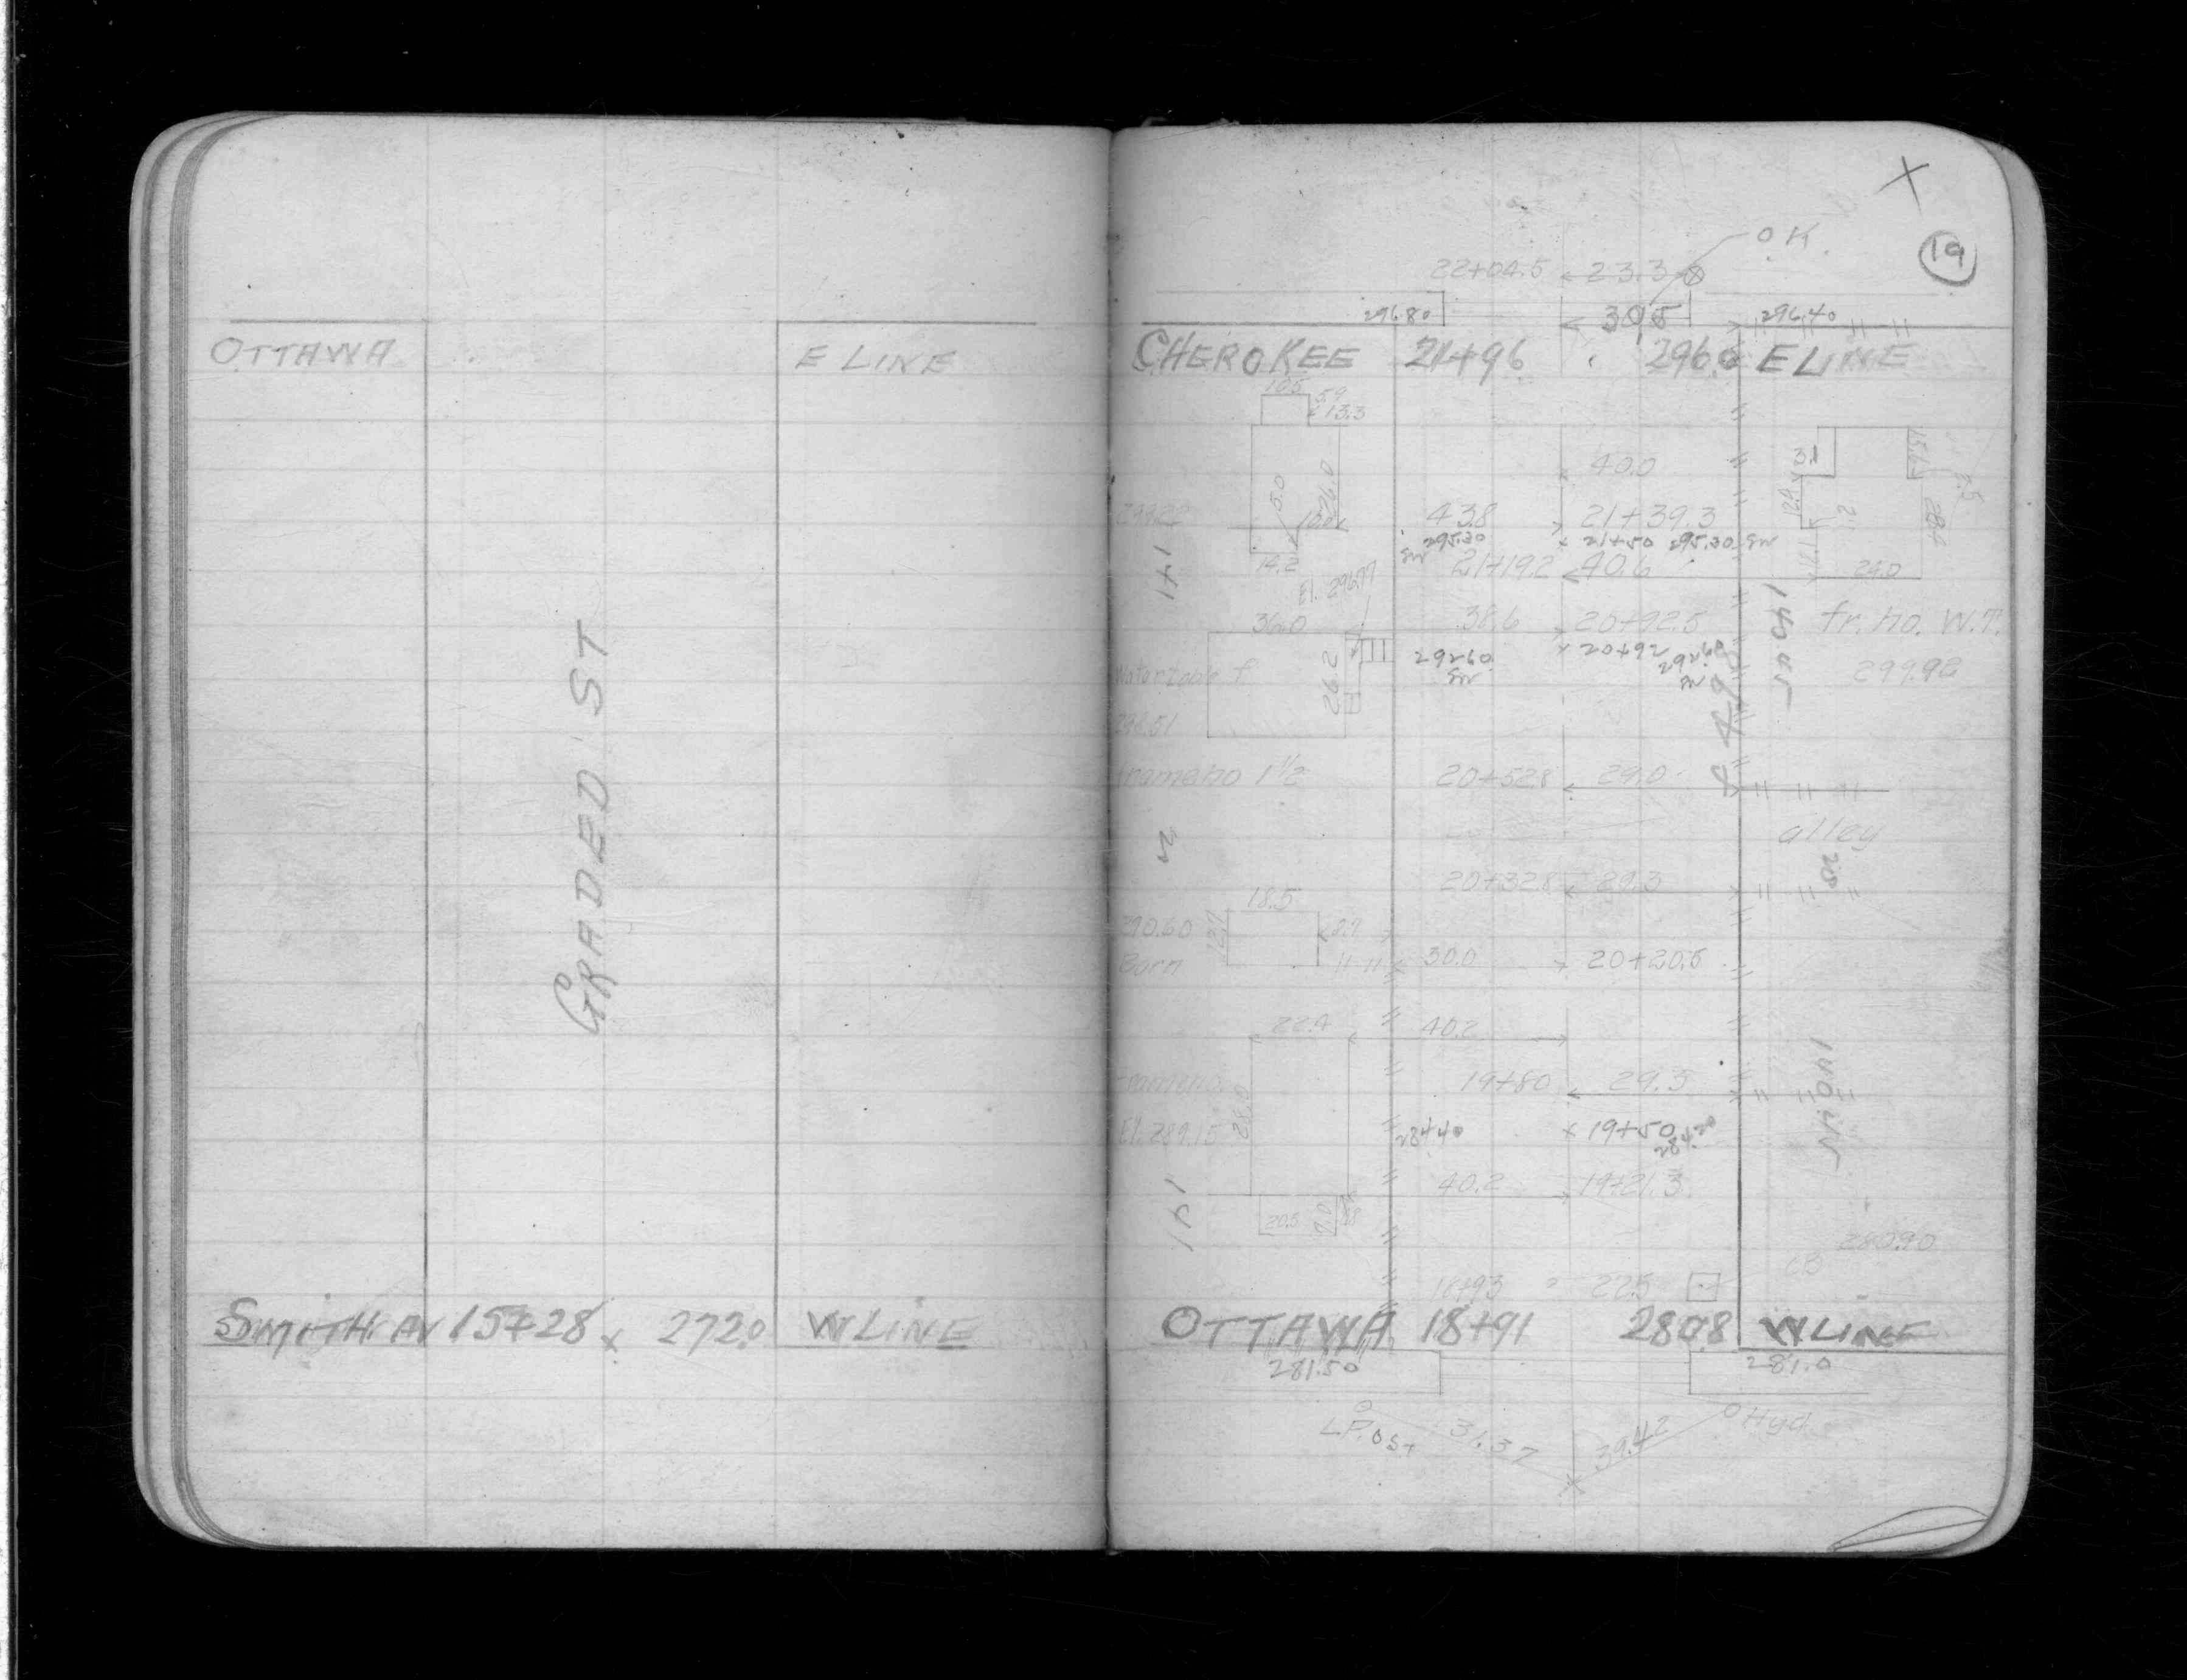 OTTAWA
E LINE
GRADED ST
SMITH AV 15+28 x 272.0 W LINE
X
19
OK
22+04.5 23.3
296.80 39.5 296.40
CHEROKEE 21+96 296.0 E LINE
10.5
5.9
13.3
3.1
40.0
5.0
26.0
43.8 21+39.3
295.30 21+50 295.30 SW
SW
14.2 21+19.2 40.6 24.0
El. 296.77
36.0 38.6 20+92.5 fr. ho. W.T.
292.60 20+92 292.60
SW SW
Watertable f. 26.2 299.92
298.51
frameho 1 1/2 20+52.8 29.0
alley
20
20+32.8 29.3
18.5
290.60 12.7 0.7
Barn 30.0 20+20.5
22.4 40.2
19+80 29.5
El. 289.15 28.0 284.40 19+50 284.20
40.2 19+21.3
20.5 7.0
280.90
CB
18+93 22.5
OTTAWA 18+91 280.8 W LINE
281.50 281.0
L.P.OST 31.37 39.42 Hyd.